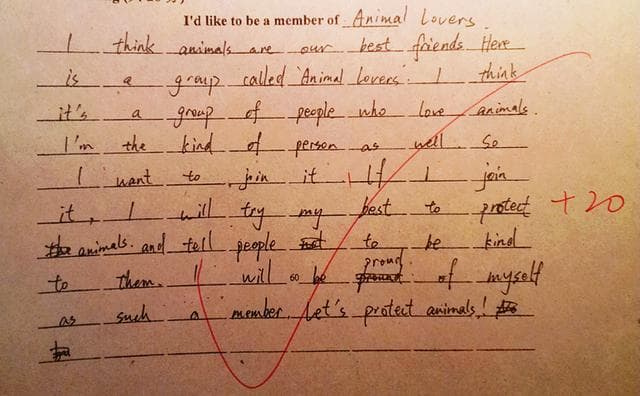 I'd like to be a member of Animal Lovers.
I think animals are our best friends. Here
is a group called 'Animal Lovers'. I think
it's a group of people who love animals.
I'm the kind of person as well. So
I want to join it. If I join
it, I will try my best to protect +20
the animals. and tell people not to be kind
to them. I will so be proud of myself
as such a member. Let's protect animals!